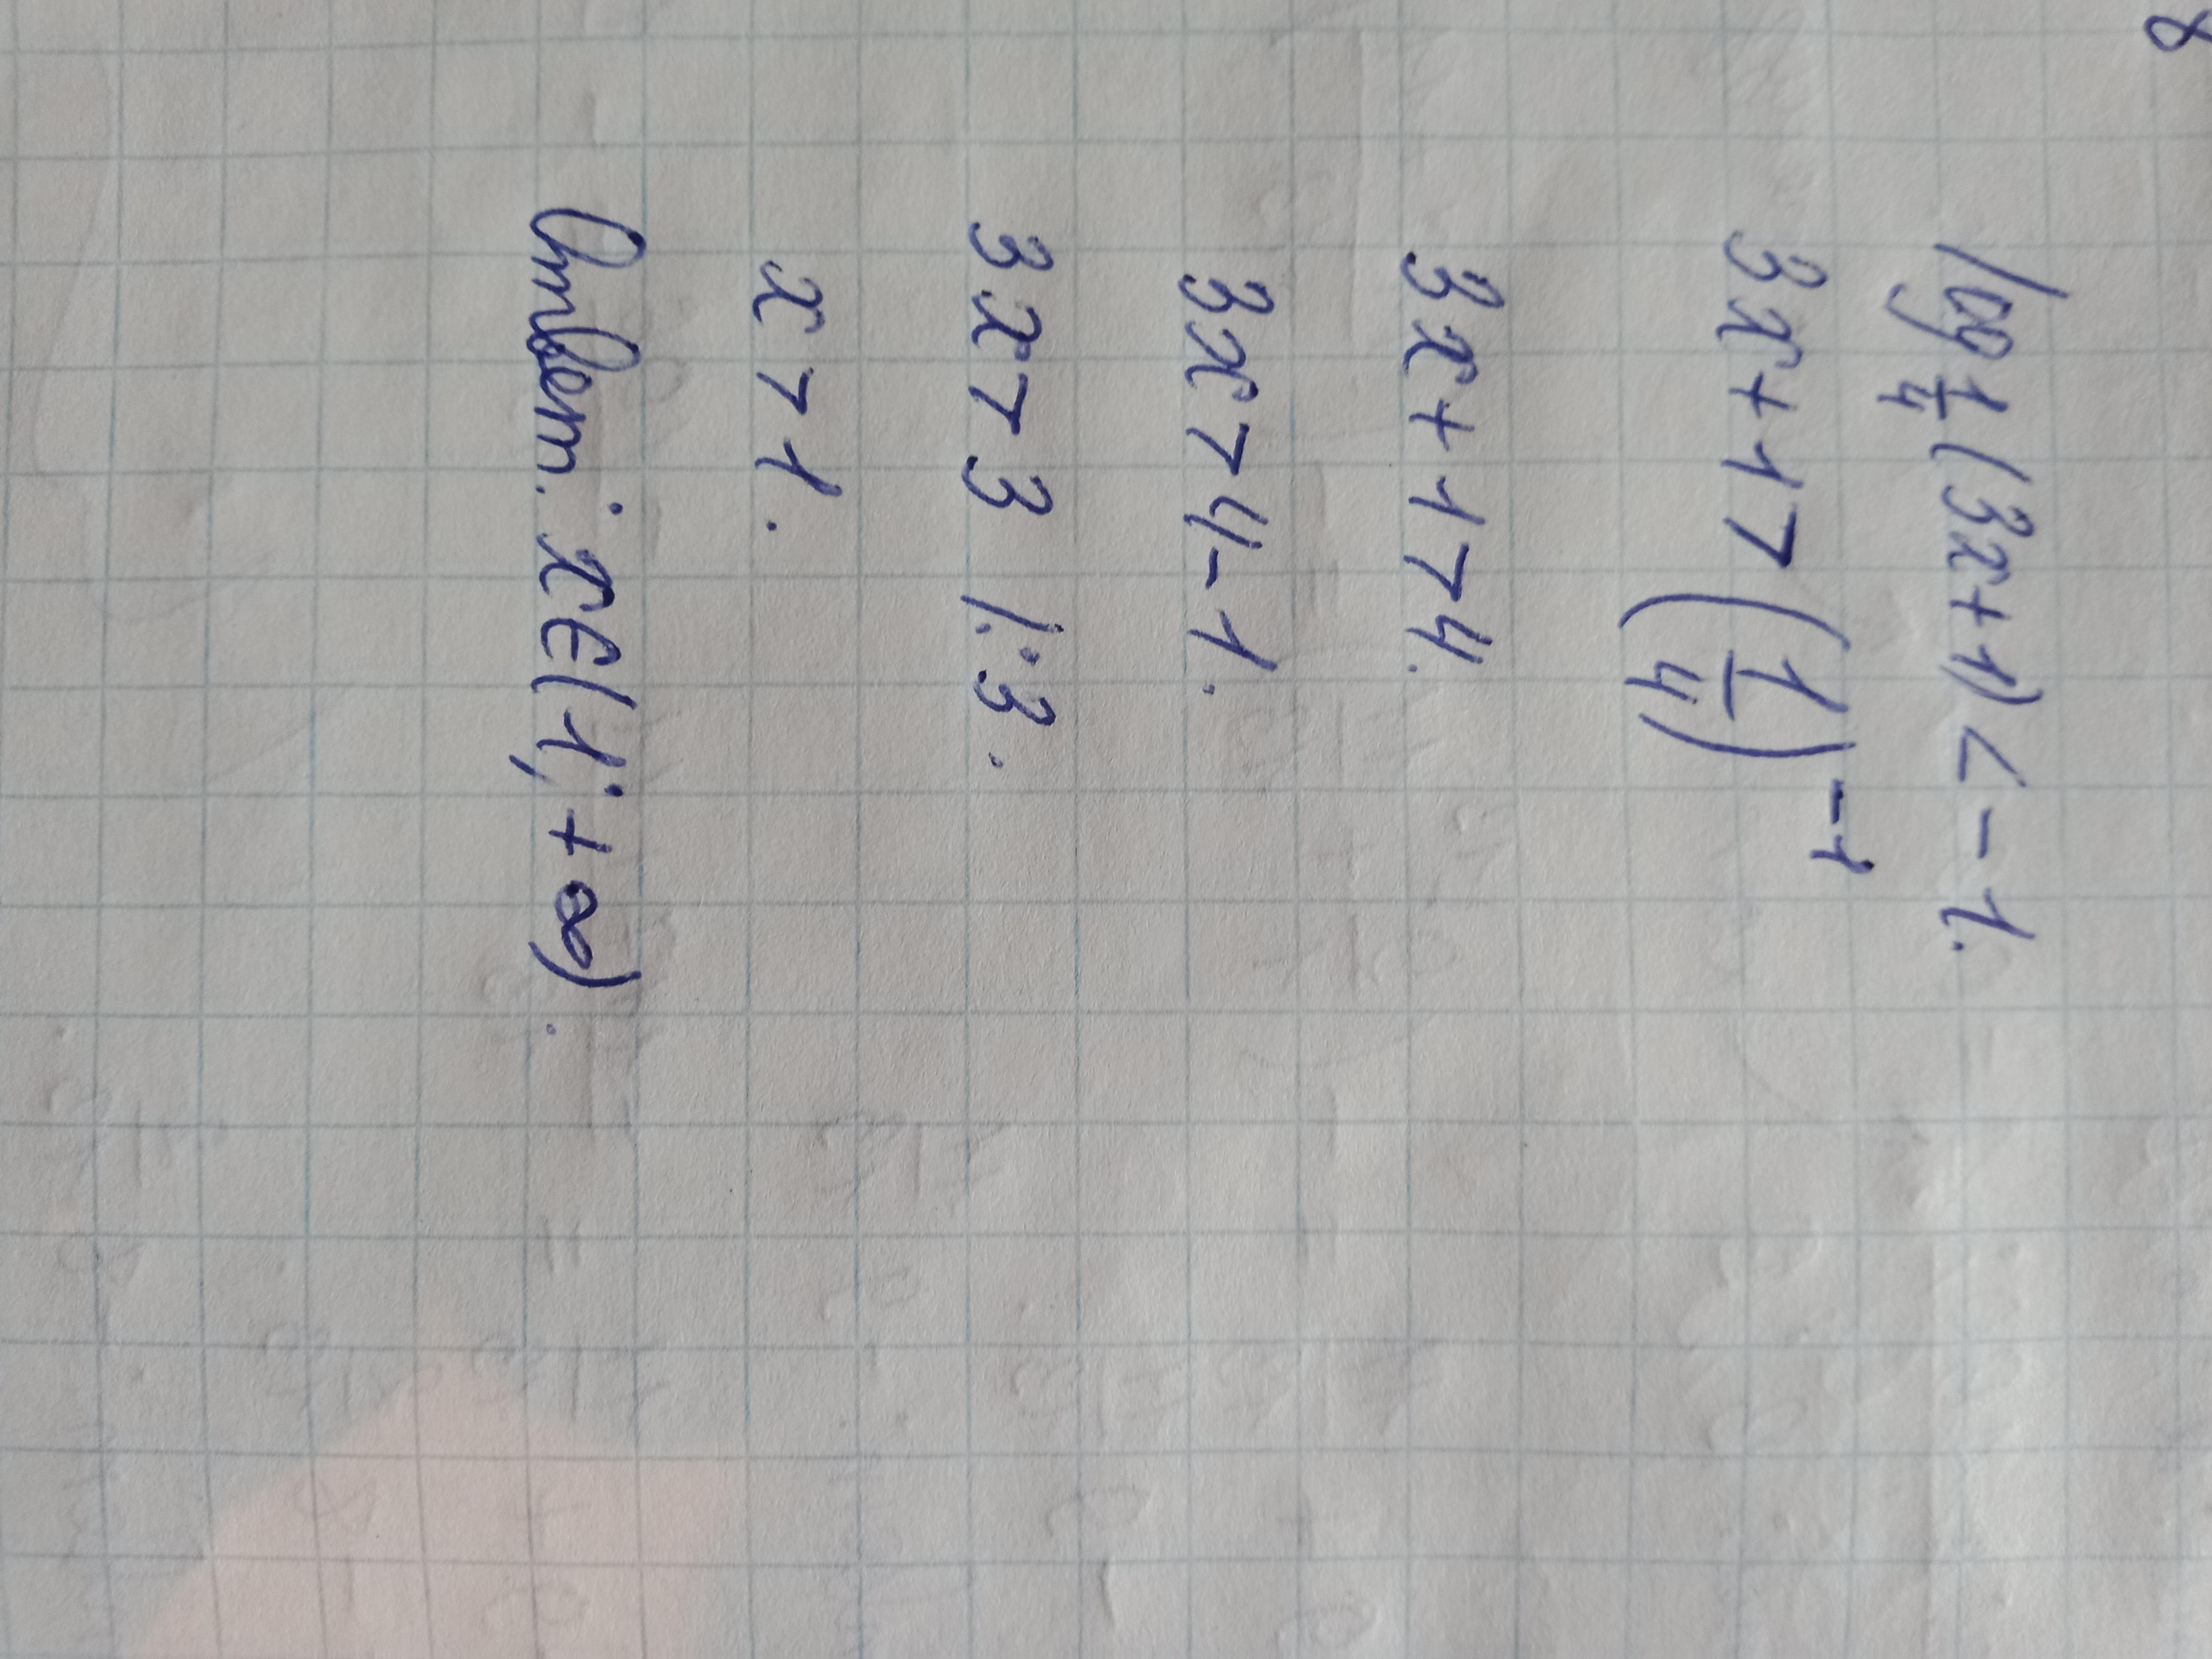 8
log 1/4 (3x+1) < -1.
3x+1 > (1/4)^-1
3x+1 > 4.
3x > 4-1.
3x > 3 |:3.
x > 1.
Ответ: x∈(1; +∞).